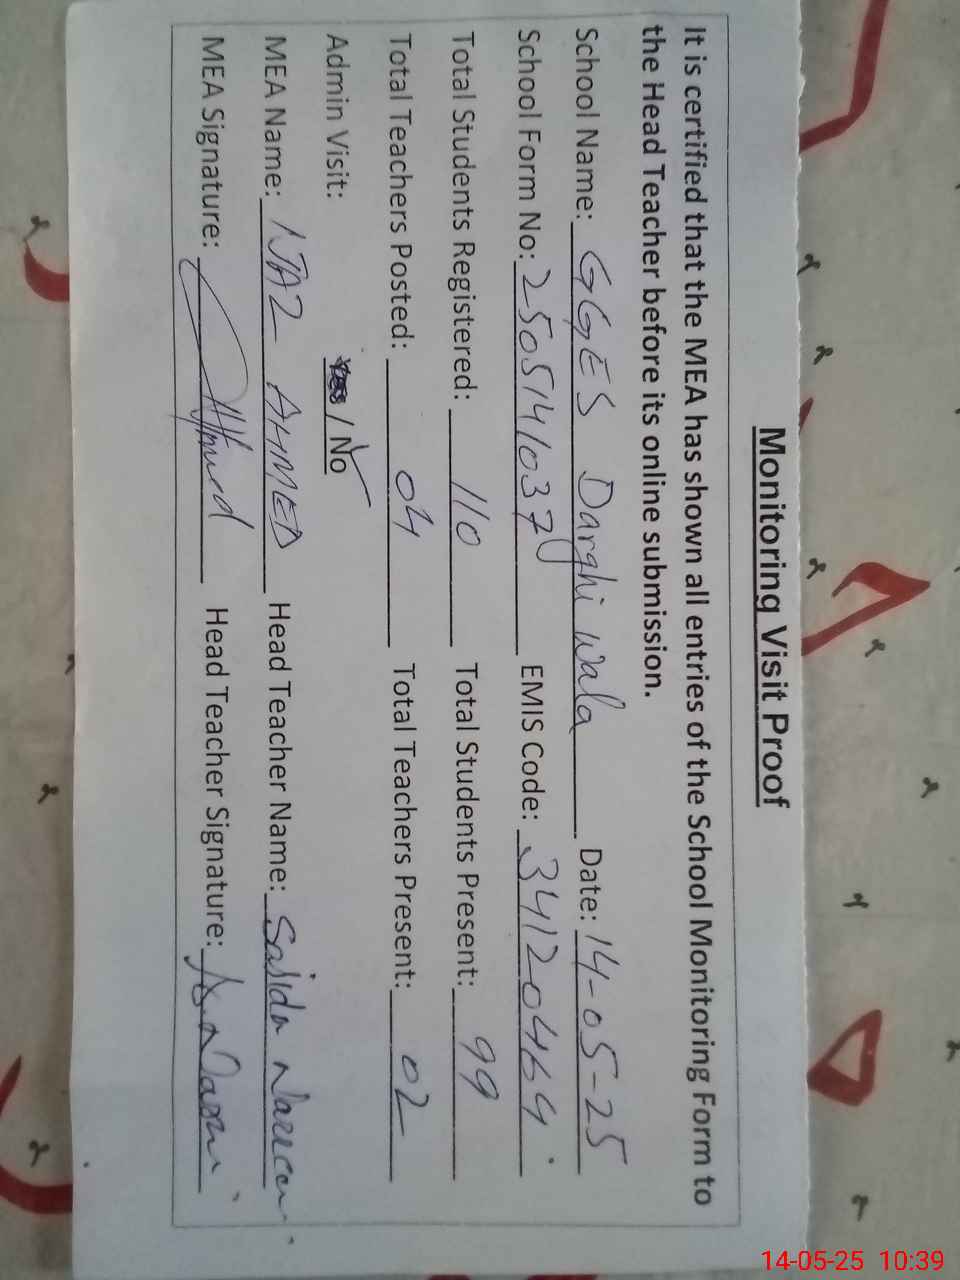 Monitoring Visit Proof
It is certified that the MEA has shown all entries of the School Monitoring Form to
the Head Teacher before its online submission.
School Name: GGES Darghi wala Date: 14-05-25
School Form No: 250514/037 EMIS Code: 34120464
Total Students Registered: 110 Total Students Present: 99
Total Teachers Posted: 04 Total Teachers Present: 02
Admin Visit: Yes / No
MEA Name: NAZ AHMED Head Teacher Name: Sajida
MEA Signature: Ahmed Head Teacher Signature:
14-05-25 10:39